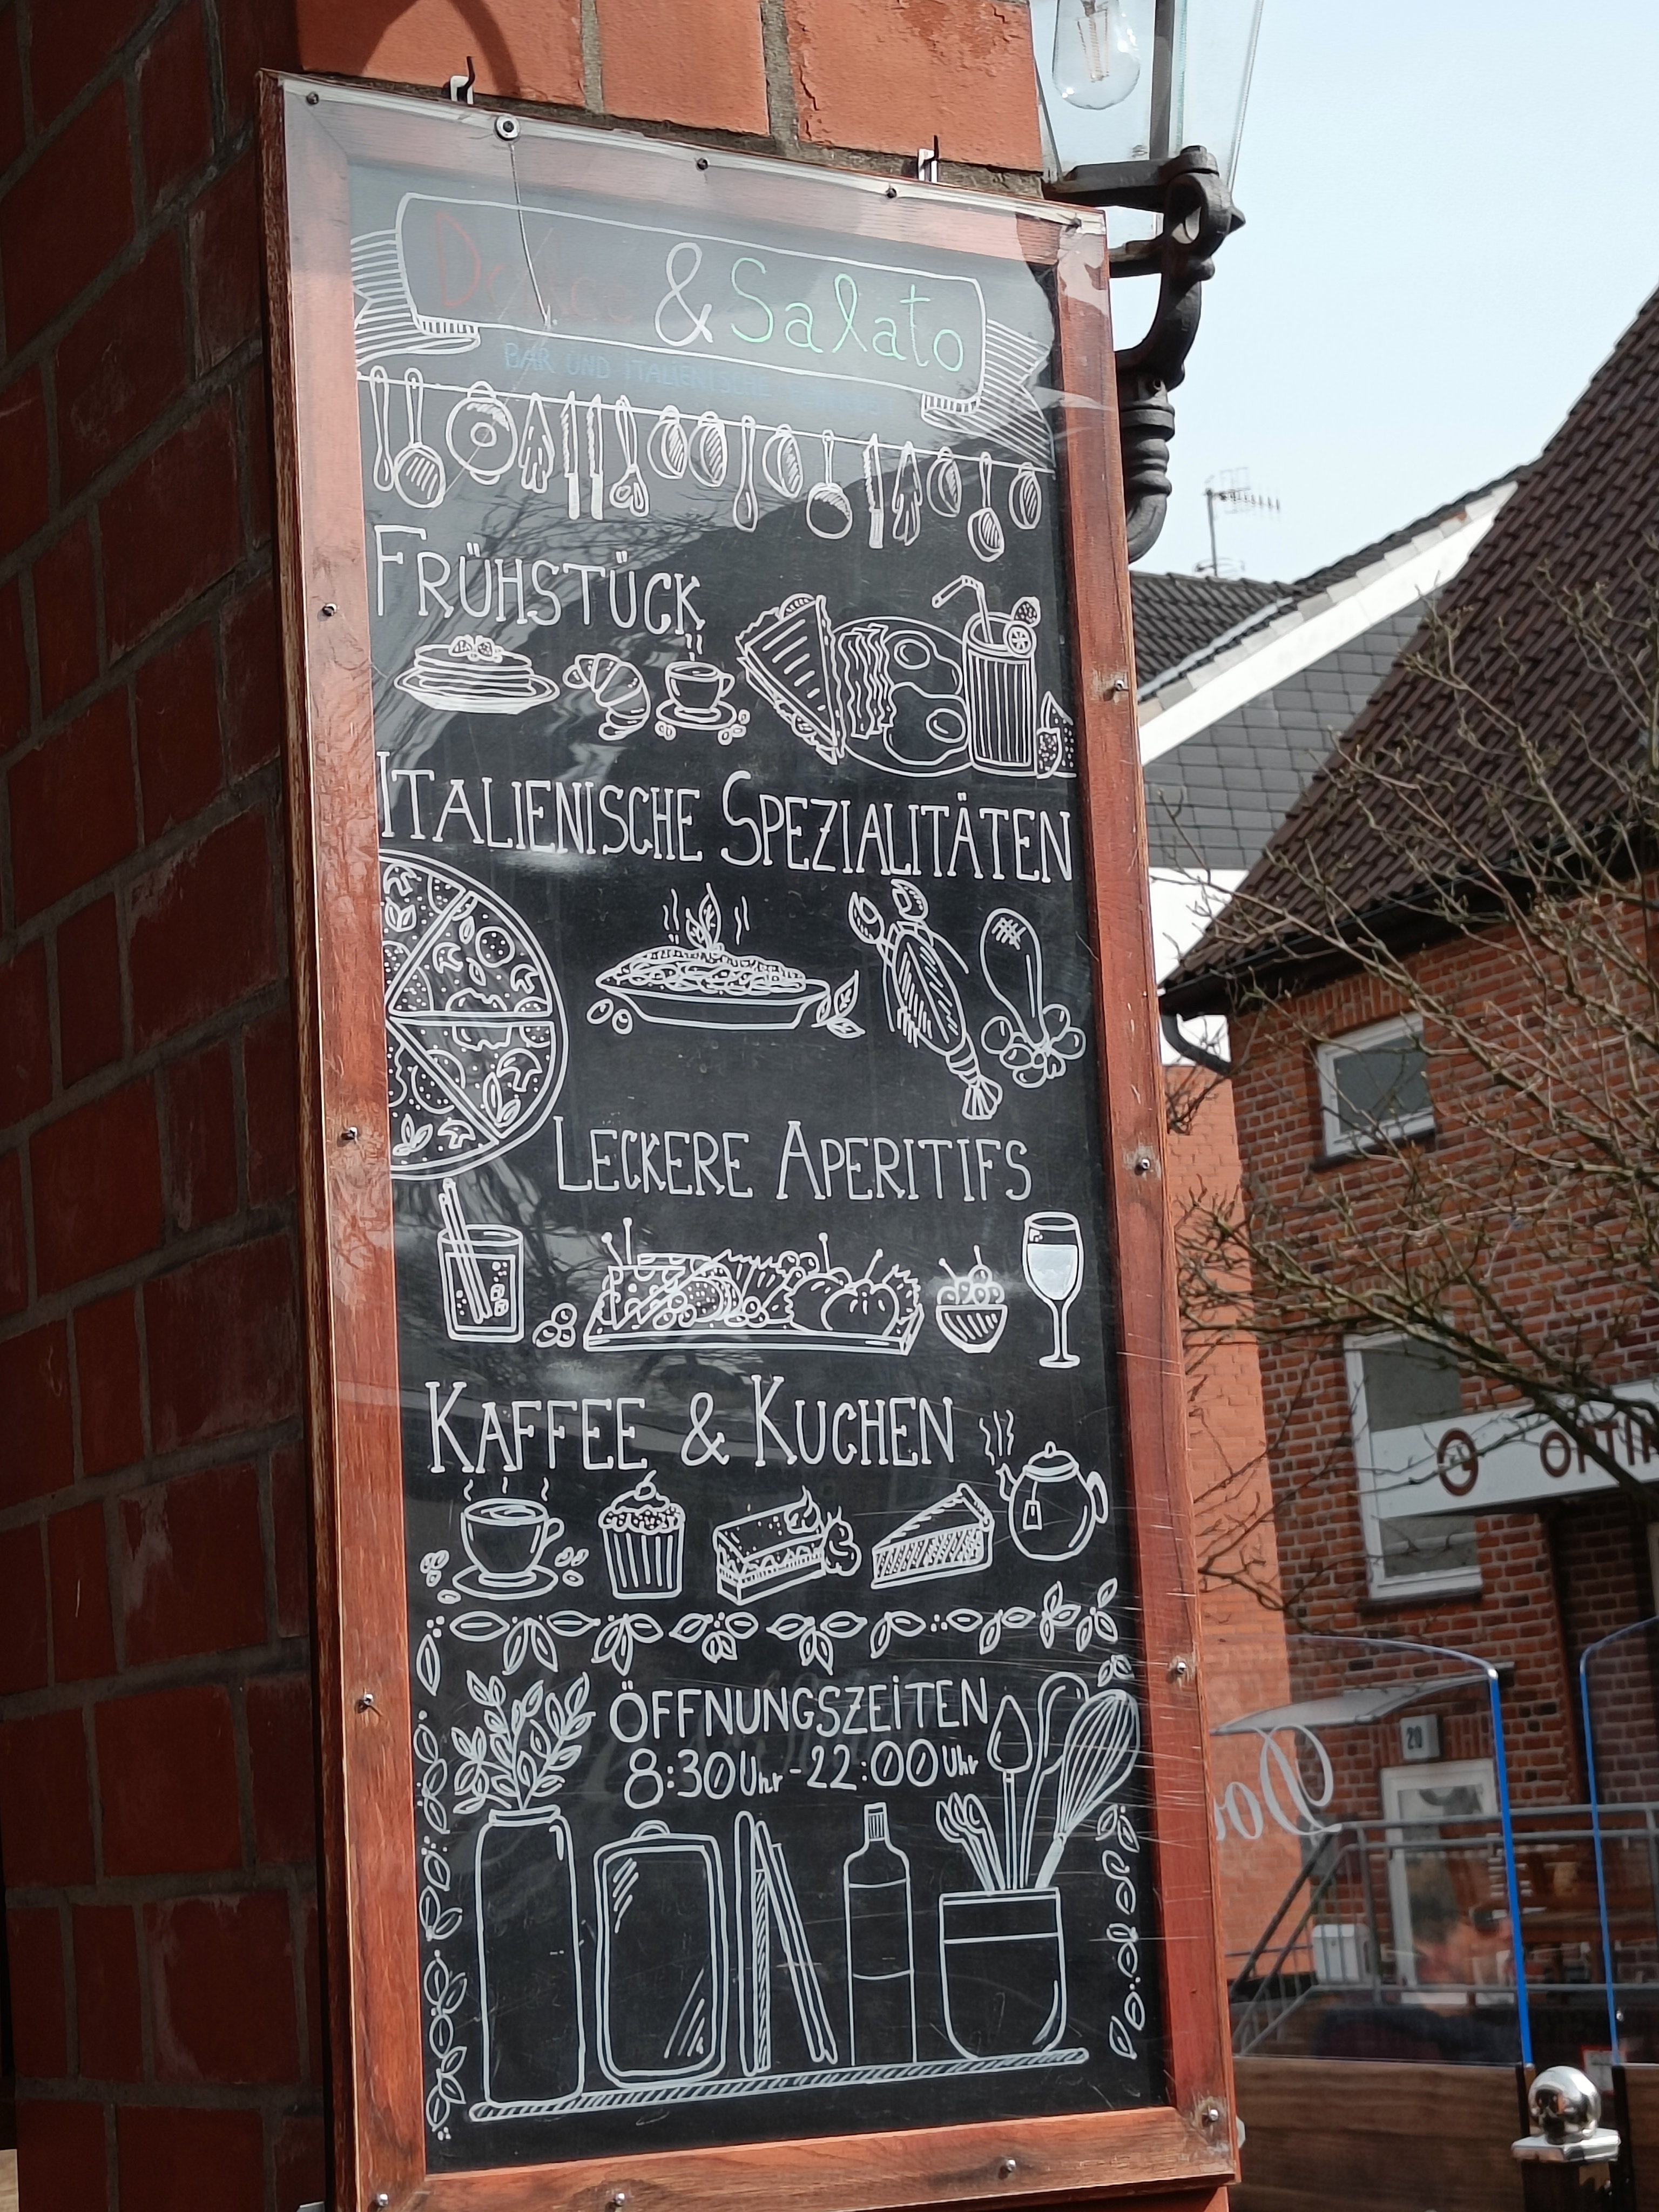 Dolce & Salato
BAR UND ITALIENISCHE
FRÜHSTÜCK
ITALIENISCHE SPEZIALITÄTEN
LECKERE APERITIFS
KAFFEE & KUCHEN
ÖFFNUNGSZEITEN
8:30 Uhr - 22:00 Uhr
OPTIK
20